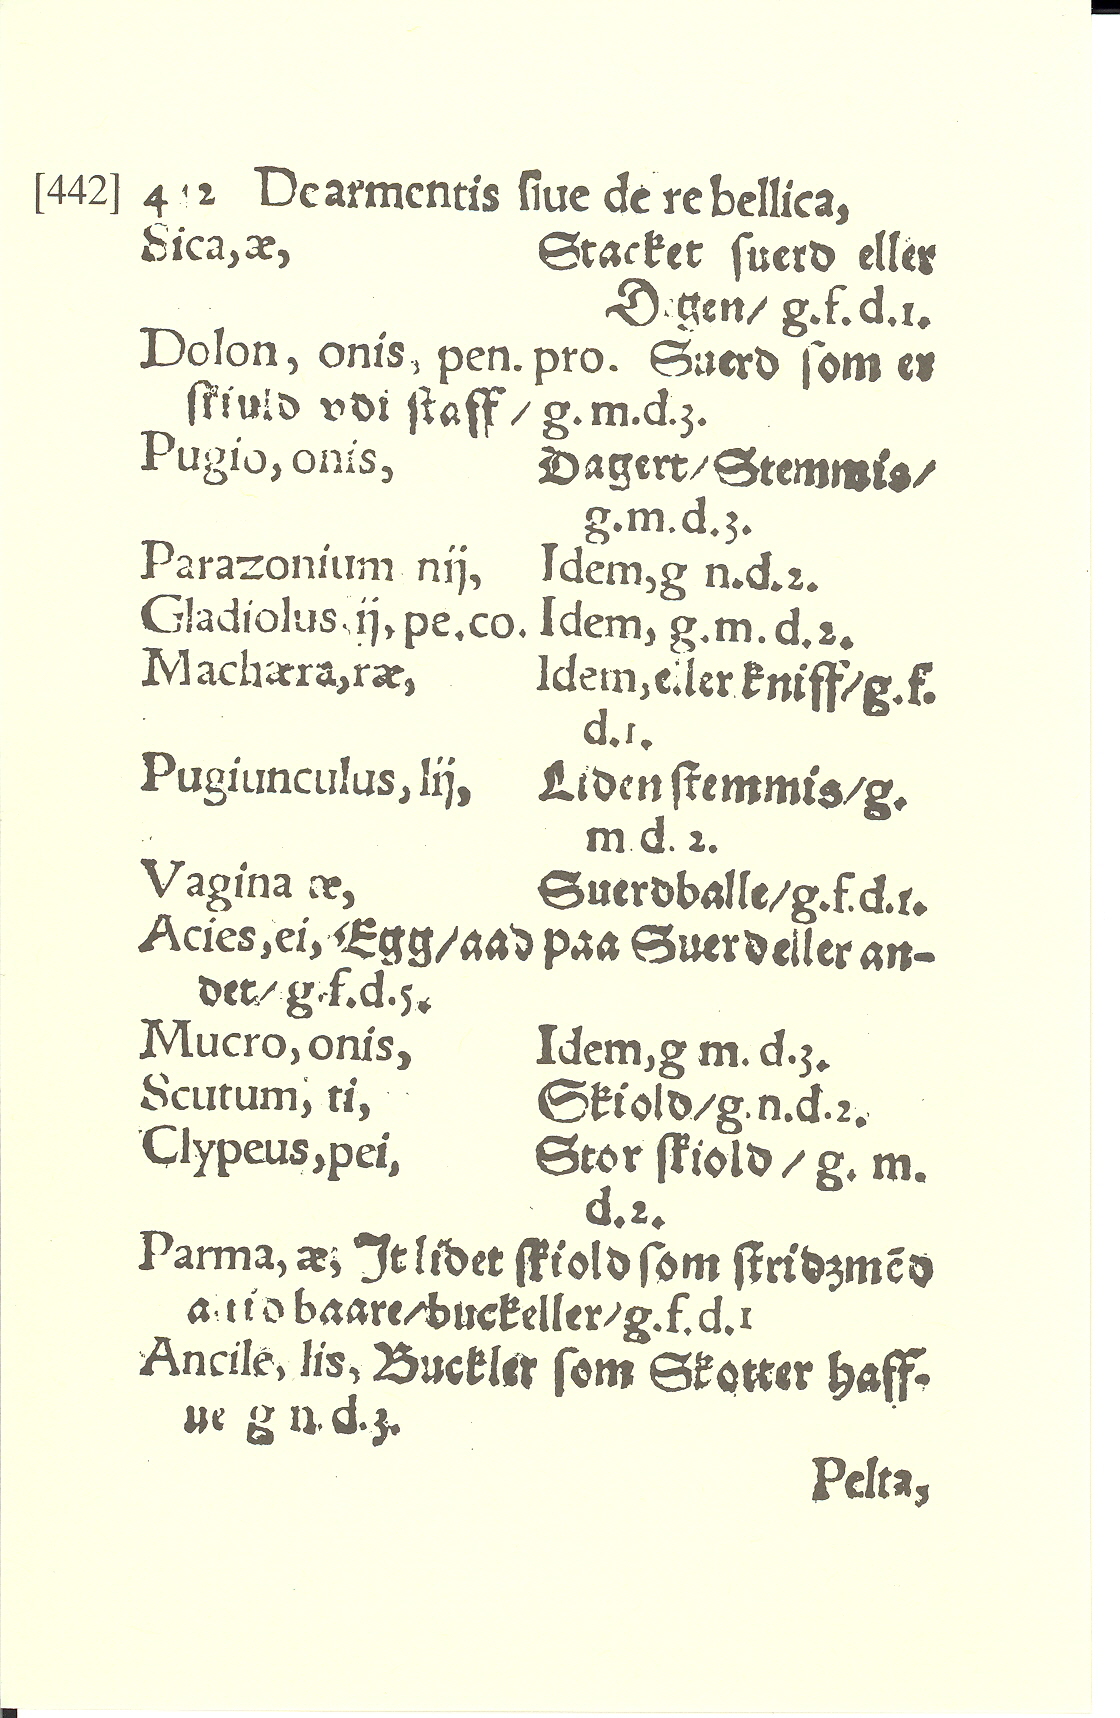 [442] 4 2 De armentis ſiue de re bellica,
Sica, æ, Stacket ſuerd eller
D gen/ g.f.d.1.
Dolon, onis, pen. pro. Suerd ſom er
ſkiuld vdi ſtaff / g.m.d.3.
Pugio, onis, Dagert/ Stemmis/
g.m.d.3.
Parazonium nij, Idem,g n.d.2.
Gladiolus ij, pe.co. Idem, g.m.d.2.
Machæra,ræ, Idem,eller kniff/g.f.
d.1.
Pugiunculus, lij, Liden ſtemmis/g.
m d. 2.
Vagina æ, Suerdballe/g.f.d.1.
Acies,ei, Egg/aad paa Suerd eller an-
det/ g.f.d.5.
Mucro, onis, Idem,g m. d.3.
Scutum, ti, Skiold/g.n.d.2.
Clypeus,pei, Stor ſkiold / g. m.
d.2.
Parma, æ, It lidet ſkiold ſom ſtridzmēd
baare/buckeller/g.f.d.1
Ancile, lis, Buckler ſom Skotter haff-
ue g n.d.3.
Pelta,